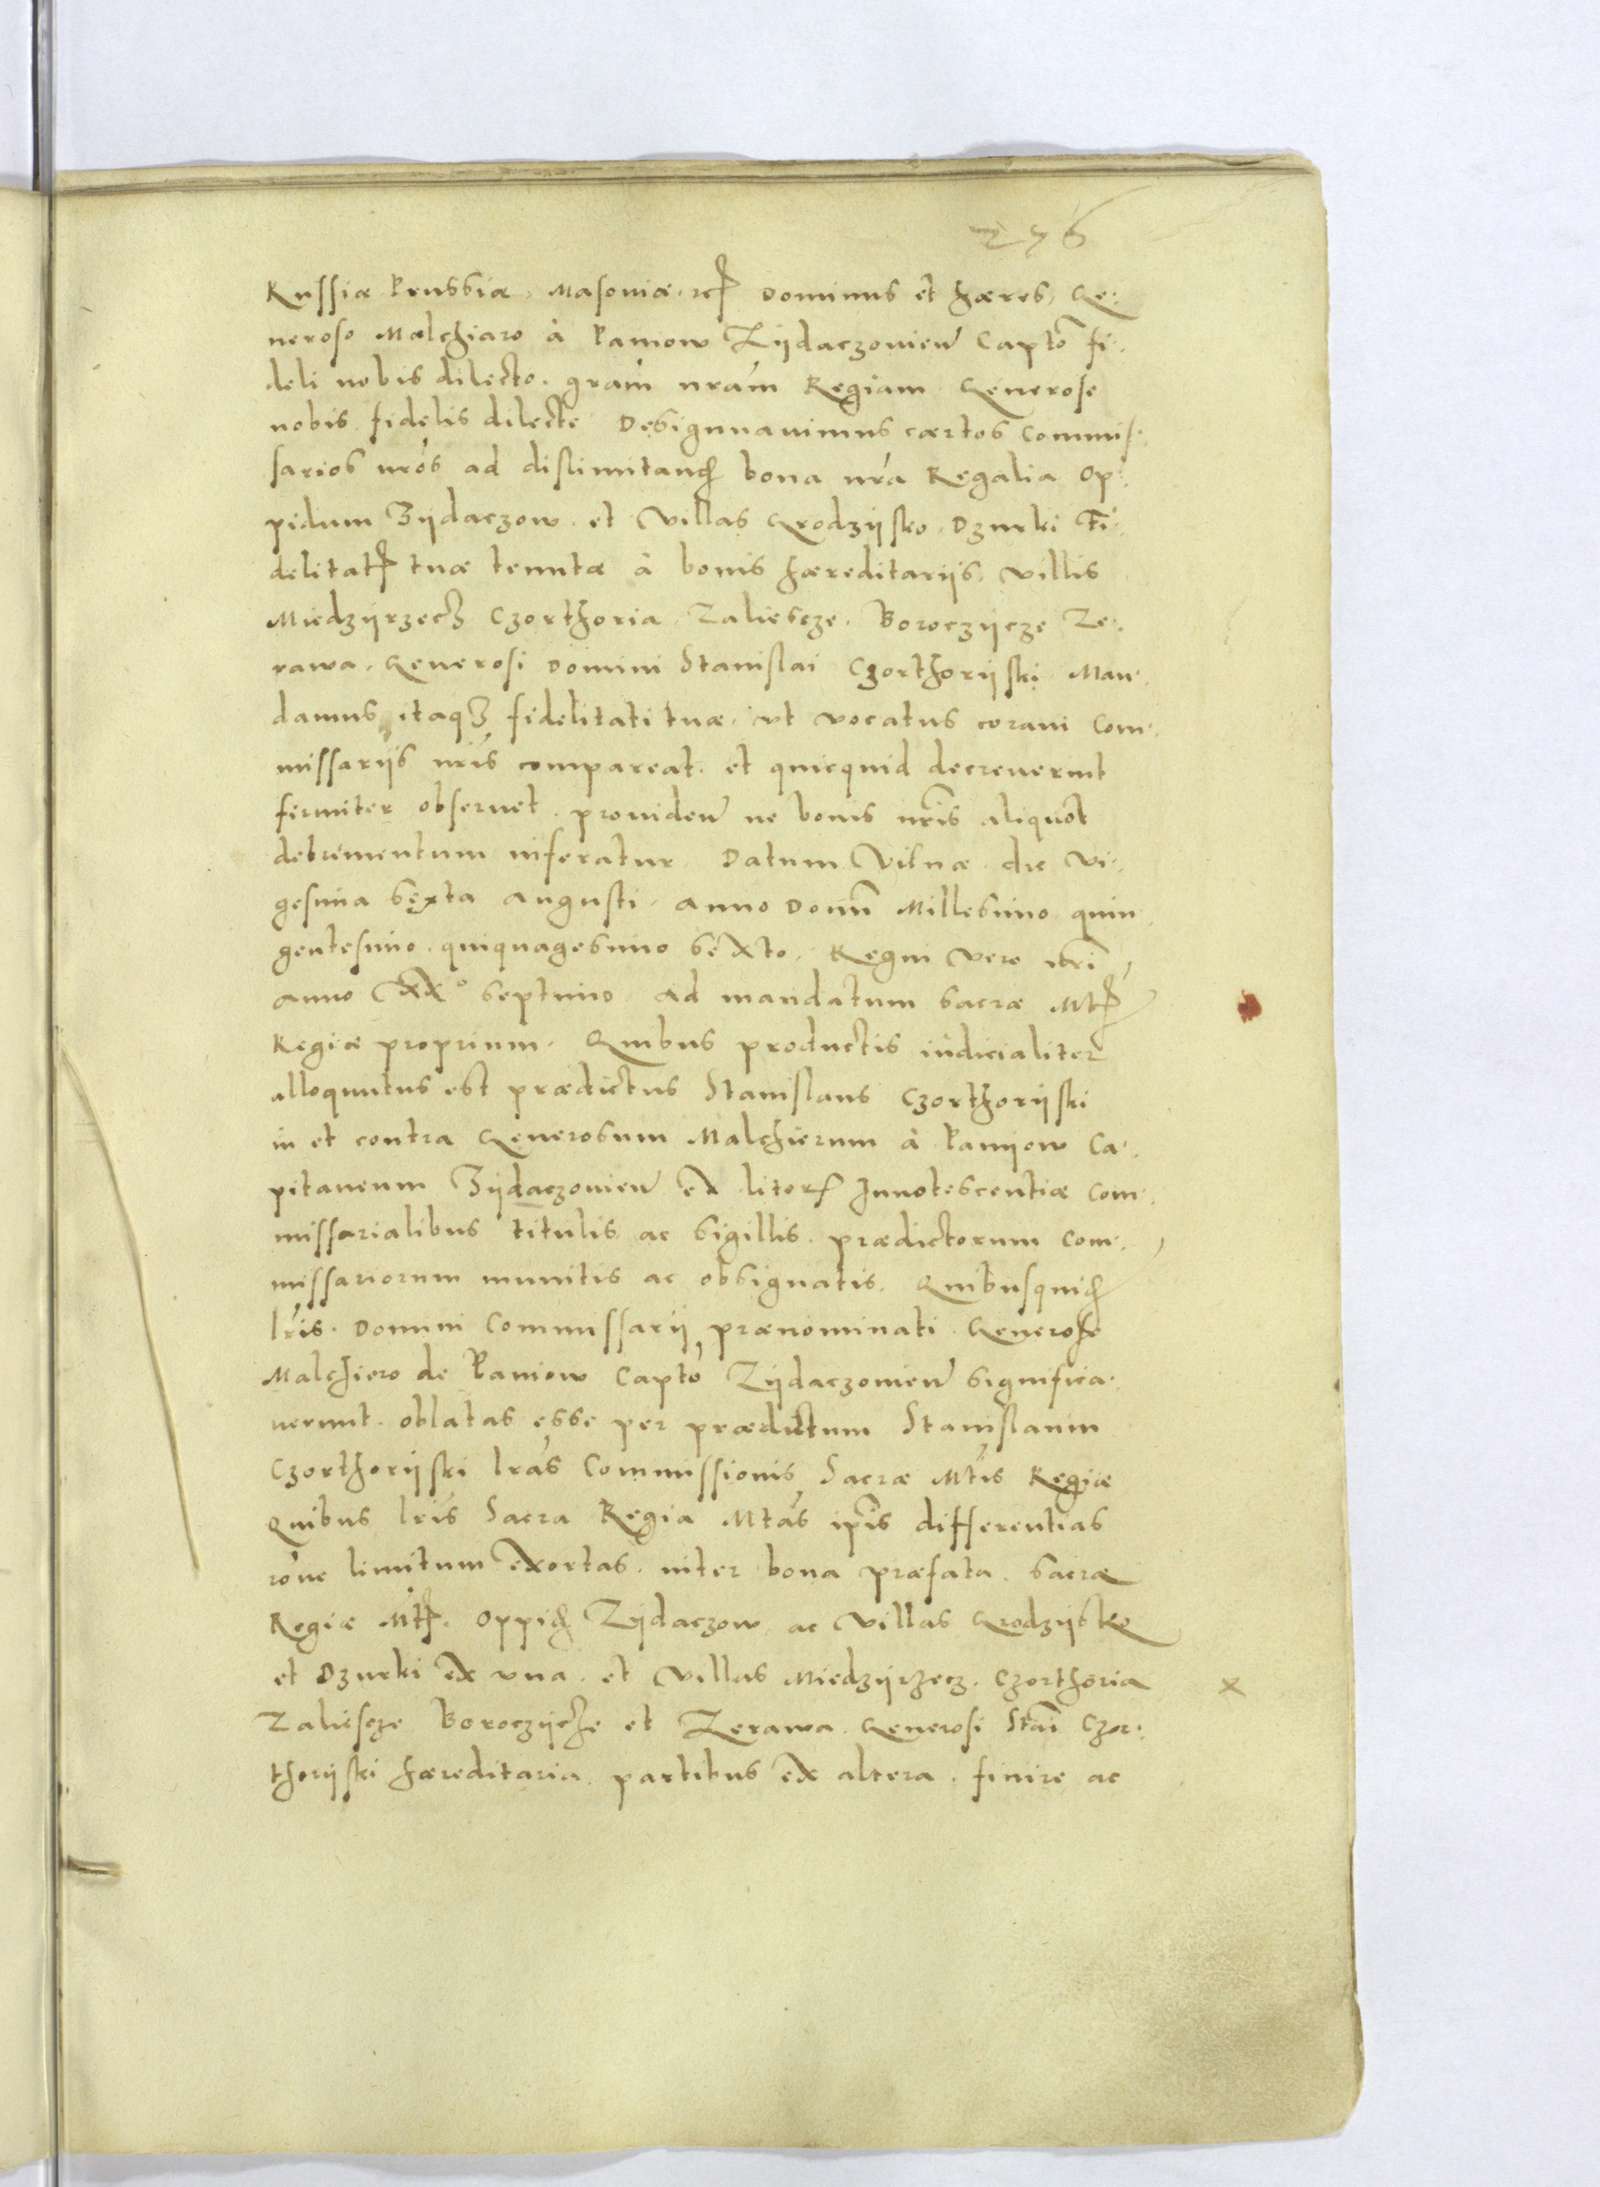 276
Russiæ Prussiæ, Masoviæ, etc Dominus et hæres, Ge-
neroso Malchiaro à Paniow Zÿdaczovien Capto fi-
deli nobis dilecto. grām nrām Regiam. Generose
nobis fidelis dilecte. Designnavimus cærtos Commis-
sarios nrōs ad dislimitand bona nrā Regalia Op-
pidum Zÿdaczow. et Villas Grodzÿsko. Dzurki Fi-
delitatis tuæ tenutæ à bonis hæreditariis, villis
Miedzÿrzecz Czorthoria. Zaliescze. Boroczÿcze Ze-
rawa. Generosi Domini Stanislai Czorthorÿski. Man-
damus itaqz fidelitati tuæ, vt vocatus coram Com-
missariis nrīs compareat. et quicquid decreverint
firmiter observet. providen ne bonis nrīs aliquot
detrimentum inferatur. Datum Vilnæ. die Vi-
gesima sexta Augusti. Anno Domi Millesimo quin
gentesimo. quiquagesimo sexto. Regni vero nrī
anno XXo septimo. Ad mandatum sacræ Mtis
Regiæ proprium. Quibus productis iudicialiter
alloquutus est prædictus Stanislaus Czorthorÿski
in et contra Generosum Malchierum à Paniow Ca-
pitaneum Zÿdaczovien ex liter Innotescentiæ Com-
missarialibus titulis ac sigillis. prædictorum Com-
missariorum munitis ac obsignatis. Quibusquid
lrīs. Domini Commissarii prænominati. Generoso
Malchiero de Paniow Capto Zÿdaczovien significa-
verunt. oblatas esse per prædictum Stanislaum
Czorthorÿski lrās Commissionis Sacræ Mtīs Regiæ
Quibus lrīs Sacra Regia Mtās ipīs differentias
rōne limitum exortas. inter bona præfata. Sacræ
Regiæ Mtis. Oppid Zÿdaczow. ac Villas Grodzÿsko
et Dzurki ex vna. et Villas Miedzÿrzecz. Czorthoria
Zaliescze Boroczÿcze et Zerawa. Generosi Stāi Czor-
thorÿski hæreditaria. partibus ex altera. finire ac